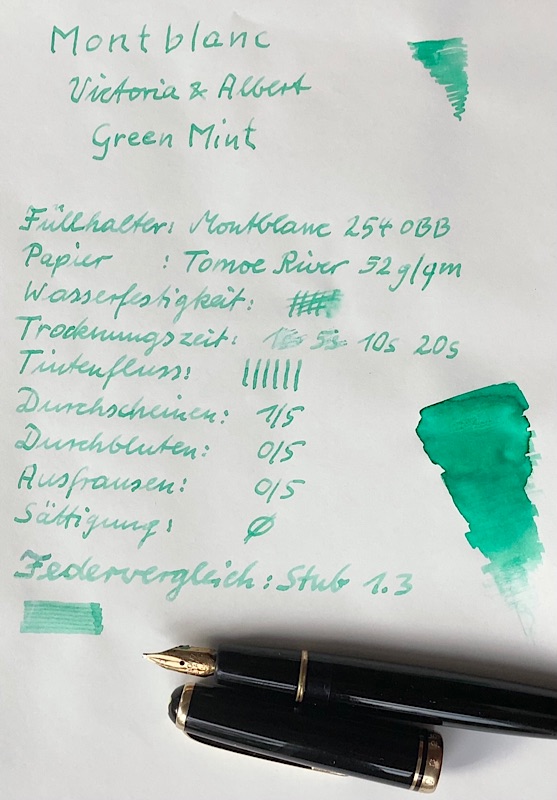 Montblanc
Victoria & Albert
Green Mint
Füllhalter: Montblanc 254 OBB
Papier : Tomoe River 52g/qm
Wasserfestigkeit:
Trocknungszeit: 1s 5s 10s 20s
Tintenfluss:
Durchscheinen: 1/5
Durchbluten: 0/5
Ausfransen: 0/5
Sättigung: Ø
Federvergleich: Stub 1.3